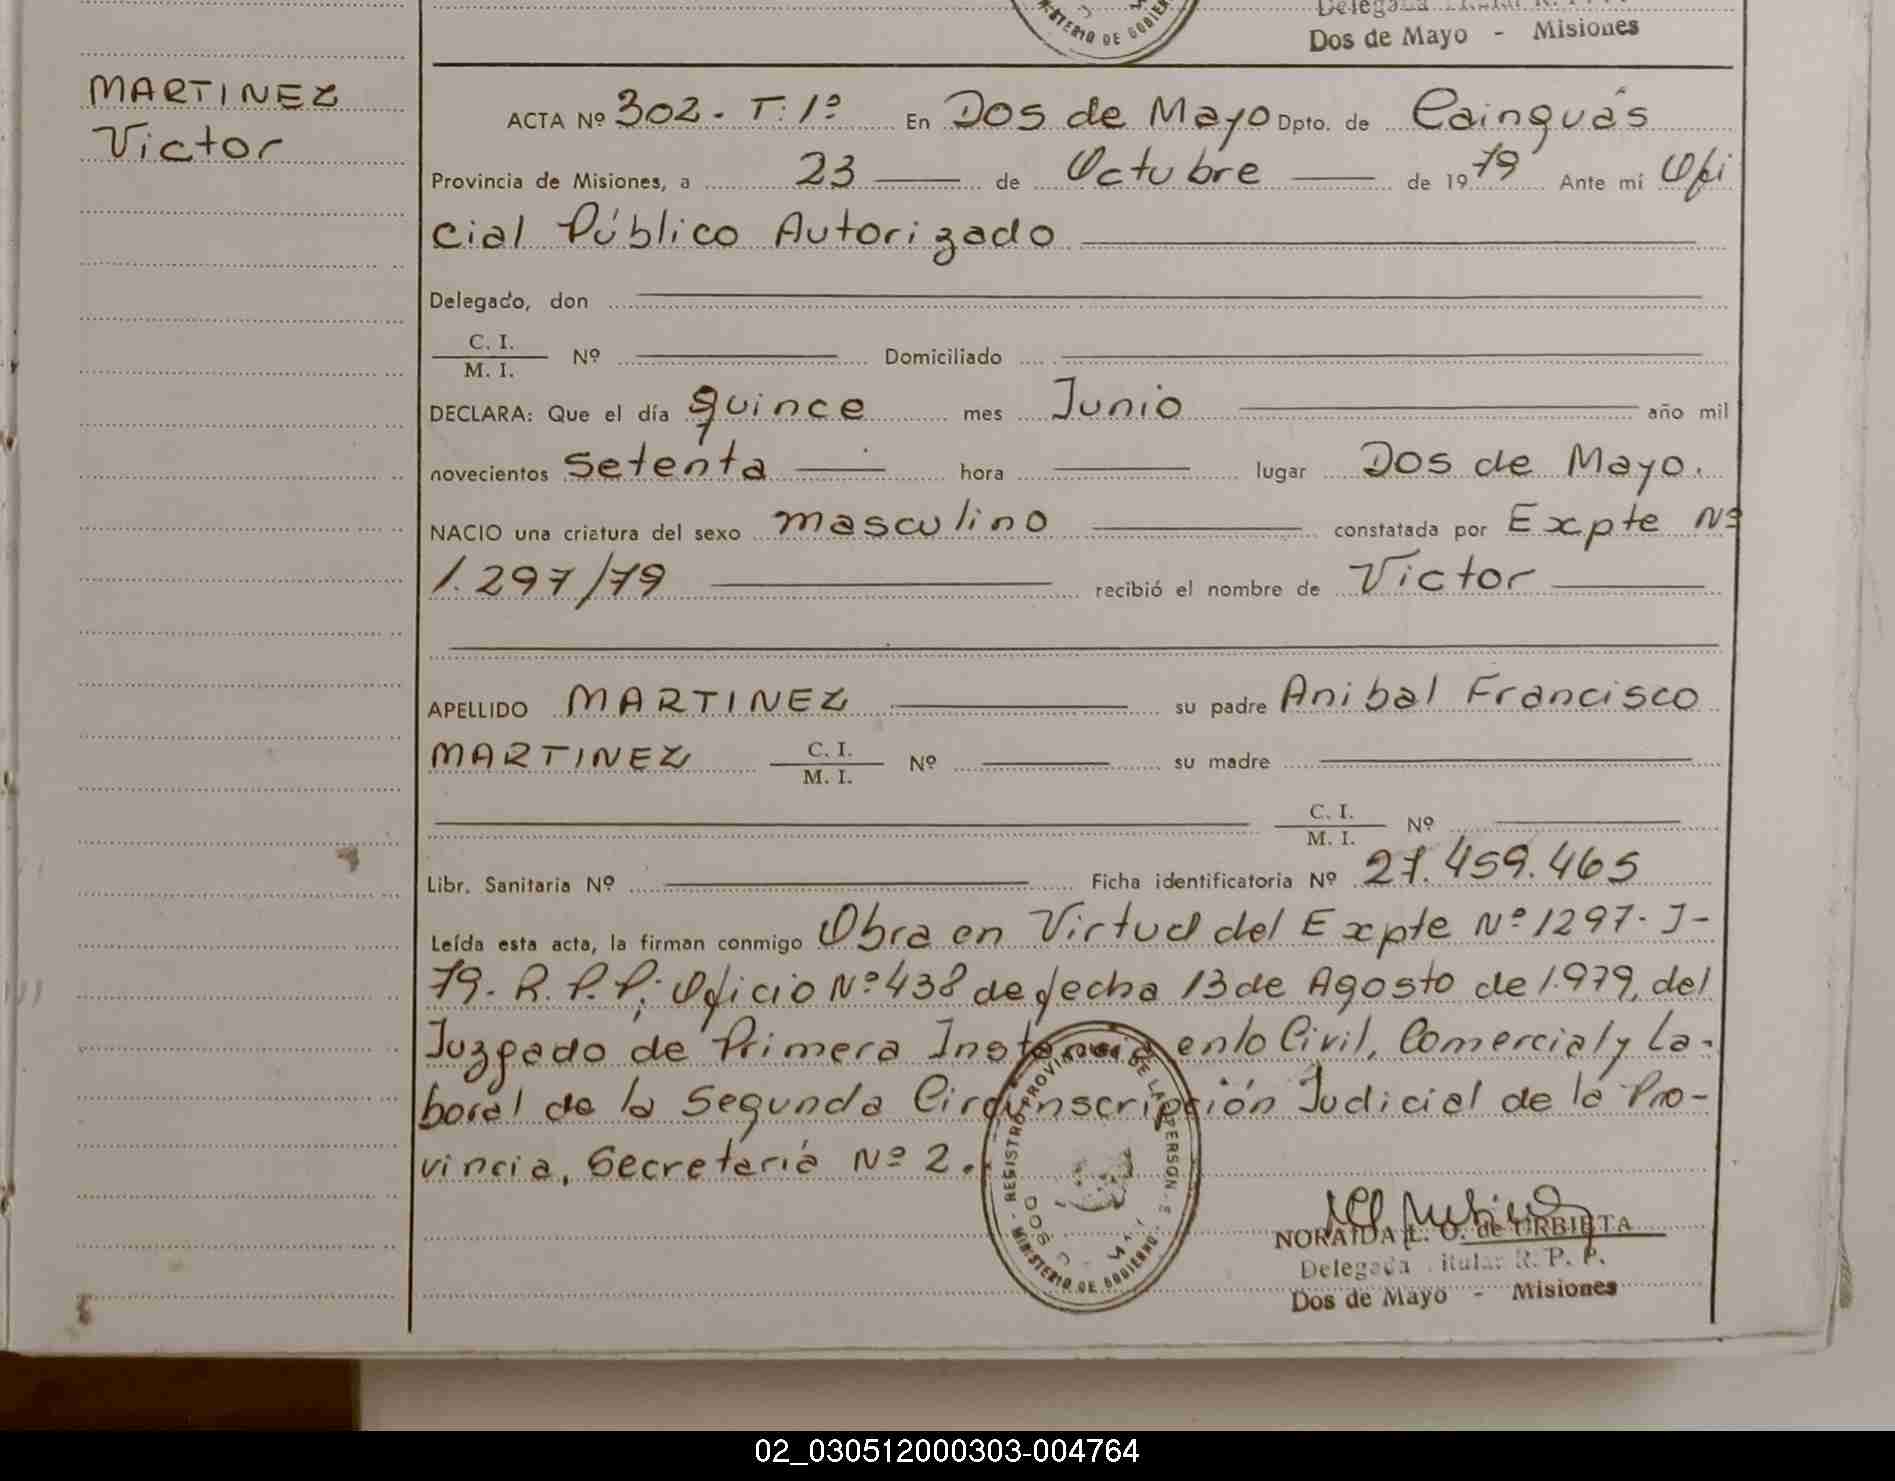 Dos de Mayo - Misiones
MARTINEZ
Victor
ACTA Nº 302 - T: 1º En Dos de Mayo Dpto. de Cainguás
Provincia de Misiones, a 23 de Octubre de 1979 Ante mí Ofi
cial Público Autorizado
Delegado, don
C. I.
M. I. Nº Domiciliado
DECLARA: Que el día quince mes Junio año mil
novecientos setenta hora lugar Dos de Mayo.
NACIO una criatura del sexo masculino constatada por Expte Nº
1.297/79 recibió el nombre de Victor
APELLIDO MARTINEZ su padre Anibal Francisco
MARTINEZ C. I. M. I. Nº su madre
C. I. M. I. Nº
Libr. Sanitaria Nº Ficha identificatoria Nº 27.459.465
Leída esta acta, la firman conmigo Obra en Virtud del Expte Nº 1297- J-
79- R. P. P; Oficio Nº 438 de fecha 13 de Agosto de 1.979, del
Juzgado de Primera Instancia en lo Civil, Comercial y La-
boral de la Segunda Circunscripción Judicial de la Pro-
vincia, Secretaria Nº 2.
REGISTRO PROVINCIAL DE LAS PERSONAS
MINISTERIO DE GOBIERNO
NORAIDA L. O. de URBIETA
Delegada Titular R. P. P.
Dos de Mayo - Misiones
02_030512000303-004764